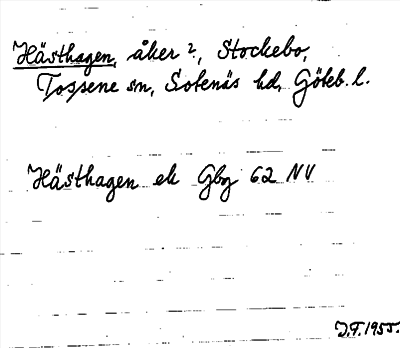 Hästhagen, åker?, Stockebo,
Tossene sn, Sotenäs hd, Göteb. l.
Hästhagen ek Gbg 62 NV
J.F. 1955.